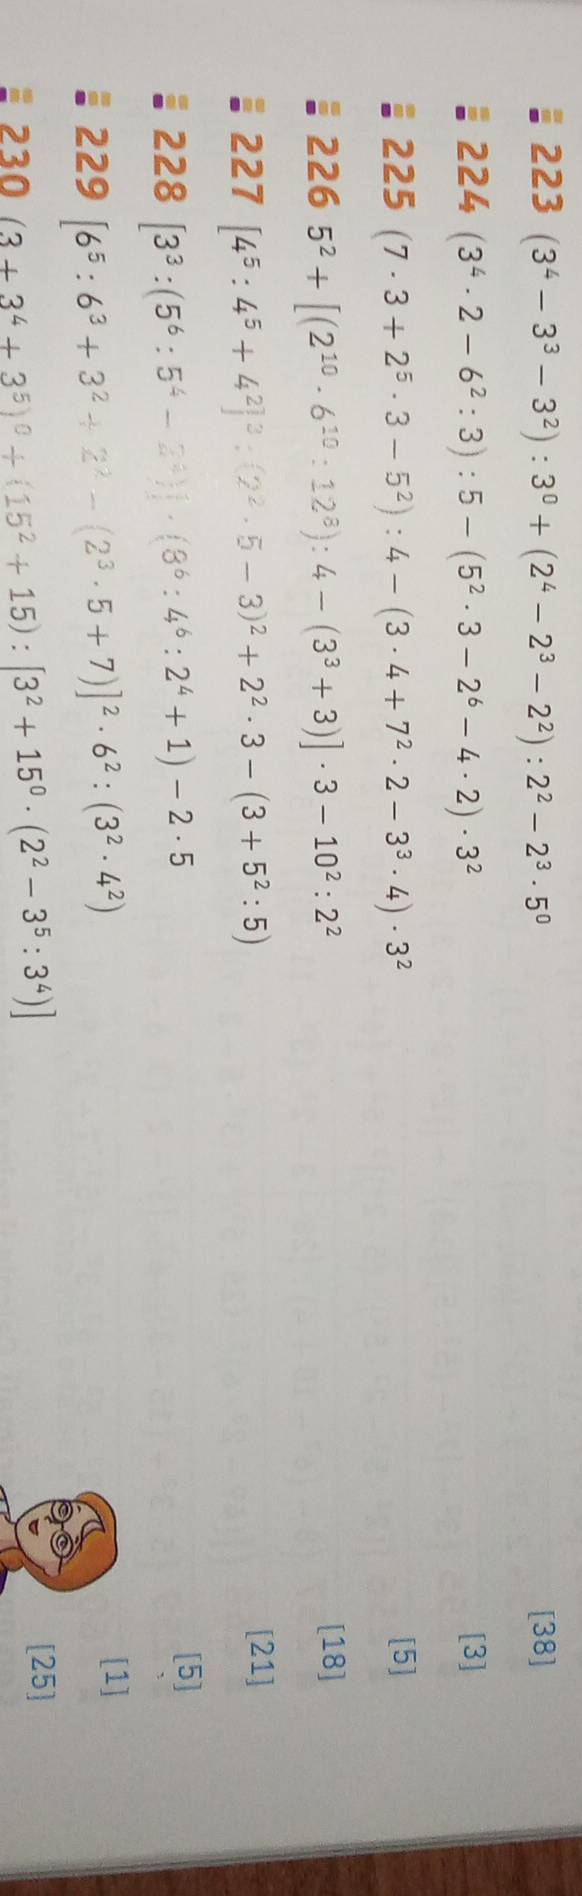 223 (3⁴ − 3³ − 3²) : 3⁰ + (2⁴ − 2³ − 2²) : 2² − 2³ · 5⁰ [38]
224 (3⁴ · 2 − 6² : 3) : 5 − (5² · 3 − 2⁶ − 4 · 2) · 3² [3]
225 (7 · 3 + 2⁵ · 3 − 5²) : 4 − (3 · 4 + 7² · 2 − 3³ · 4) · 3² [5]
226 5² + [(2¹⁰ · 6¹⁰ : 12⁸) : 4 − (3³ + 3)] · 3 − 10² : 2² [18]
227 [4⁵ : 4⁵ + 4²]³ : (2² · 5 − 3)² + 2² · 3 − (3 + 5² : 5) [21]
228 [3³ : (5⁶ : 5⁴ − 2⁴)] · (8⁶ : 4⁶ : 2⁴ + 1) − 2 · 5 [5]
229 [6⁵ : 6³ + 3² + 2² − (2³ · 5 + 7)]² · 6² : (3² · 4²) [1]
230 (3 + 3⁴ + 3⁵)⁰ + (15² + 15) : [3² + 15⁰ · (2² − 3⁵ : 3⁴)] [25]